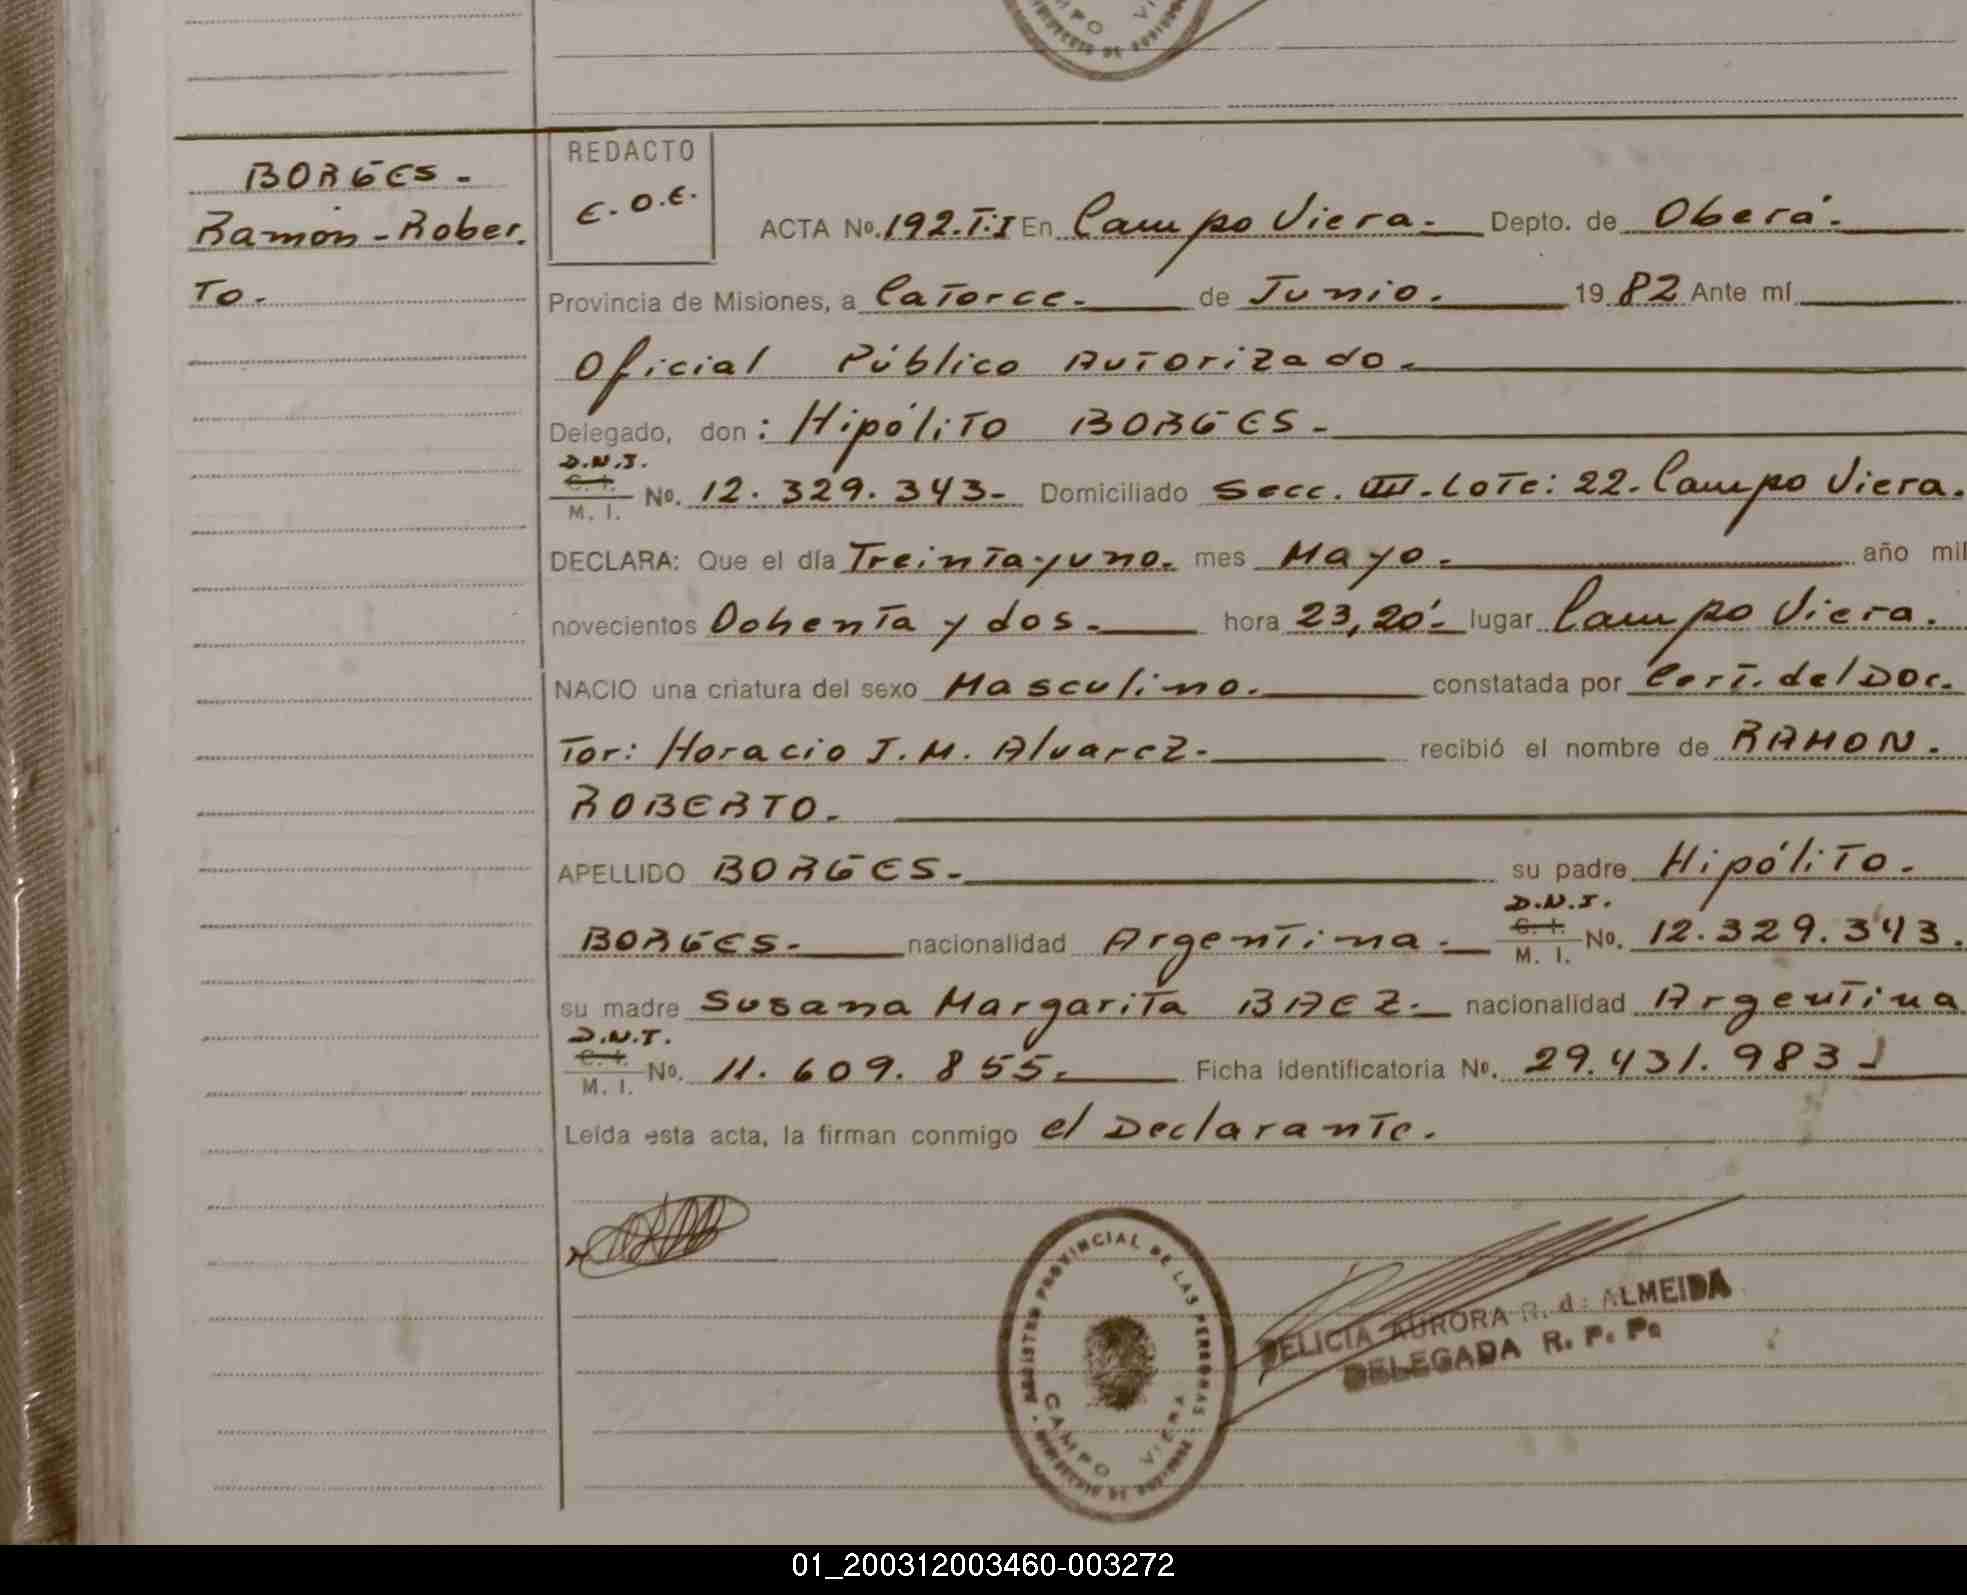 BORGES.
Ramón-Rober.
To.
REDACTO
E.O.E.
ACTA No. 192.T:I En Campo Viera. Depto. de Oberá.
Provincia de Misiones, a Catorce. de Junio. 19 82 Ante mí
Oficial Público Autorizado.
Delegado, don: Hipólito BORGES.
D.N.I.
C. I.
M. I.
No. 12.329.343- Domiciliado Secc. III. Lote: 22. Campo Viera.
DECLARA: Que el día Treinta y uno. mes Mayo. año mil
novecientos Oohenta y dos. hora 23,20'. lugar Campo Viera.
NACIO una criatura del sexo Masculino. constatada por Cert. del Doc.
Tor: Horacio J. M. Alvarez. recibió el nombre de RAMON.
ROBERTO.
APELLIDO BORGES. su padre Hipólito.
D.N.I.
BORGES. nacionalidad Argentina. C. I. M. I. No. 12.329.343.
su madre Susana Margarita BAEZ. nacionalidad Argentina
D.N.I.
C. I.
M. I.
No. 11.609.855. Ficha identificatoria No. 29.431.983
Leída esta acta, la firman conmigo el Declarante.
REGISTRO PROVINCIAL DE LAS PERSONAS
CAMPO VIERA
DELICIA AURORA R. de ALMEIDA
DELEGADA R. P. P.
01_200312003460-003272